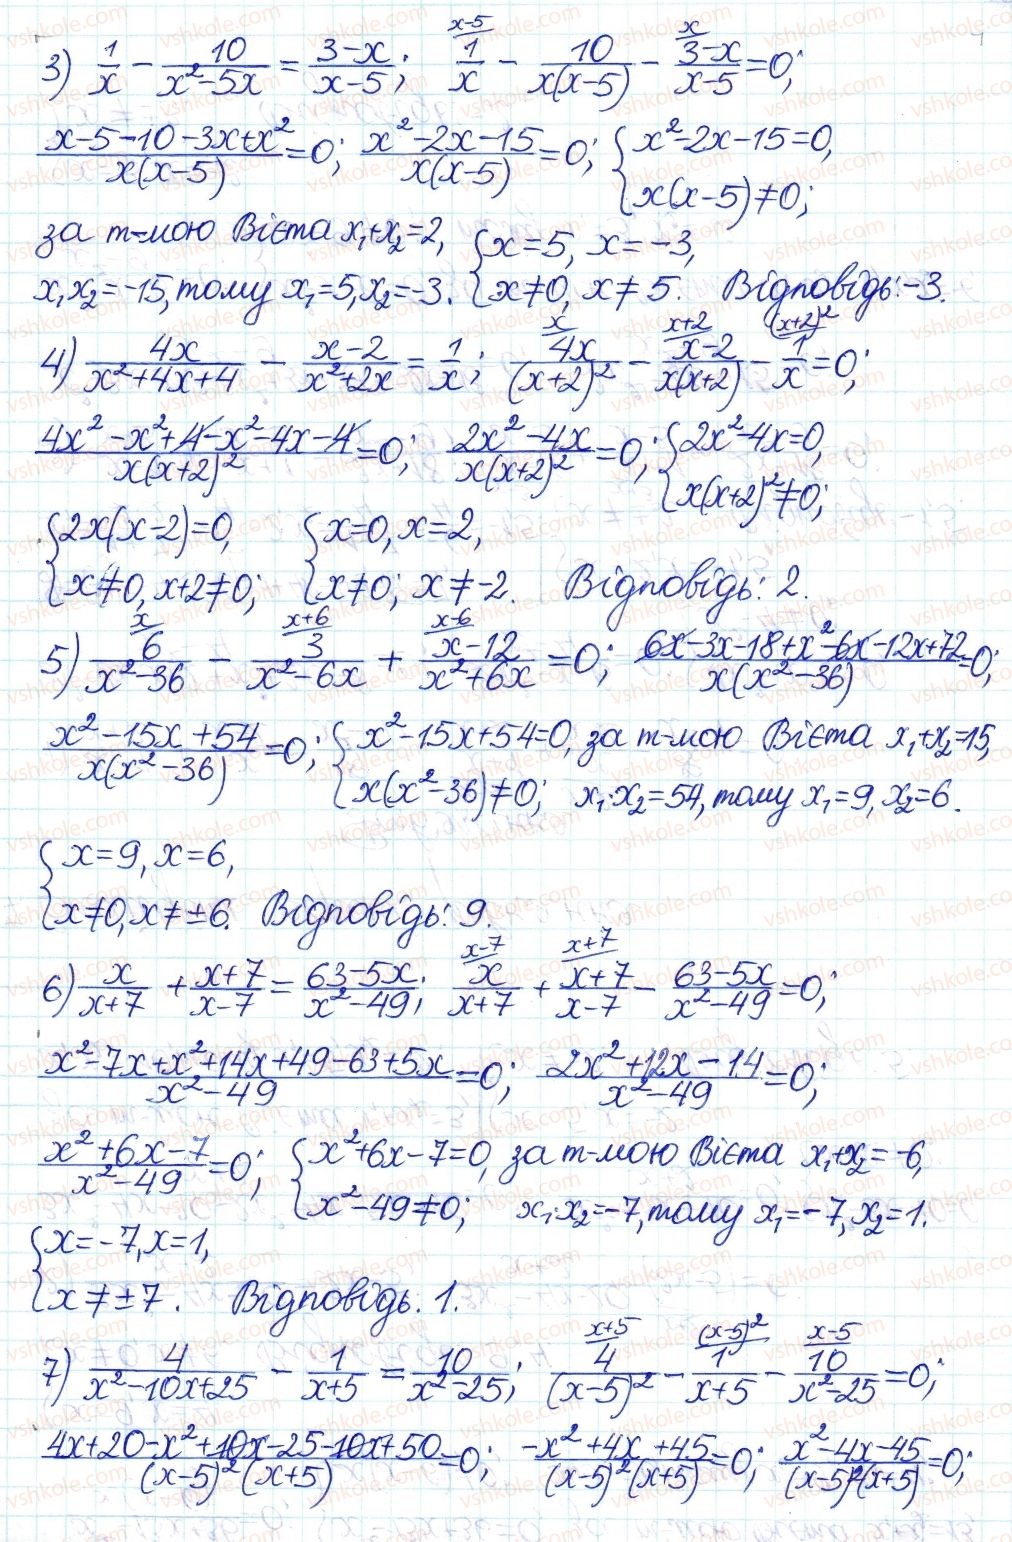 3) 1/x - 10/(x²-5x) = (3-x)/(x-5); ^(x-5) 1/x - 10/(x(x-5)) - ^(x) (3-x)/(x-5) = 0;
(x-5-10-3x+x²)/(x(x-5)) = 0; (x²-2x-15)/(x(x-5)) = 0; { x²-2x-15=0, x(x-5)≠0;
за т-мою Вієта x₁+x₂=2,
x₁x₂=-15, тому x₁=5, x₂=-3. { x=5, x=-3, x≠0, x≠5. Відповідь: -3.
4) 4x/(x²+4x+4) - (x-2)/(x²+2x) = 1/x; ^(x) 4x/(x+2)² - ^(x+2) (x-2)/(x(x+2)) - ^((x+2)²) 1/x = 0;
(4x²-x²+4-x²-4x-4)/(x(x+2)²) = 0; (2x²-4x)/(x(x+2)²) = 0; { 2x²-4x=0, x(x+2)²≠0;
{ 2x(x-2)=0, x≠0, x+2≠0; { x=0, x=2, x≠0; x≠-2. Відповідь: 2.
5) ^(x) 6/(x²-36) - ^(x+6) 3/(x²-6x) + ^(x-6) (x-12)/(x²+6x) = 0; (6x-3x-18+x²-6x-12x+72)/(x(x²-36)) = 0;
(x²-15x+54)/(x(x²-36)) = 0; { x²-15x+54=0, x(x²-36)≠0; за т-мою Вієта x₁+x₂=15,
x₁·x₂=54, тому x₁=9, x₂=6.
{ x=9, x=6, x≠0, x≠±6. Відповідь: 9.
6) x/(x+7) + (x+7)/(x-7) = (63-5x)/(x²-49); ^(x-7) x/(x+7) + ^(x+7) (x+7)/(x-7) - (63-5x)/(x²-49) = 0;
(x²-7x+x²+14x+49-63+5x)/(x²-49) = 0; (2x²+12x-14)/(x²-49) = 0;
(x²+6x-7)/(x²-49) = 0; { x²+6x-7=0, x²-49≠0; за т-мою Вієта x₁+x₂=-6,
x₁·x₂=-7, тому x₁=-7, x₂=1.
{ x=-7, x=1, x≠±7. Відповідь. 1.
7) 4/(x²-10x+25) - 1/(x+5) = 10/(x²-25); ^(x+5) 4/(x-5)² - ^((x-5)²) 1/(x+5) - ^(x-5) 10/(x²-25) = 0;
(4x+20-x²+10x-25-10x+50)/((x-5)²(x+5)) = 0; (-x²+4x+45)/((x-5)²(x+5)) = 0; (x²-4x-45)/((x-5)²(x+5)) = 0;